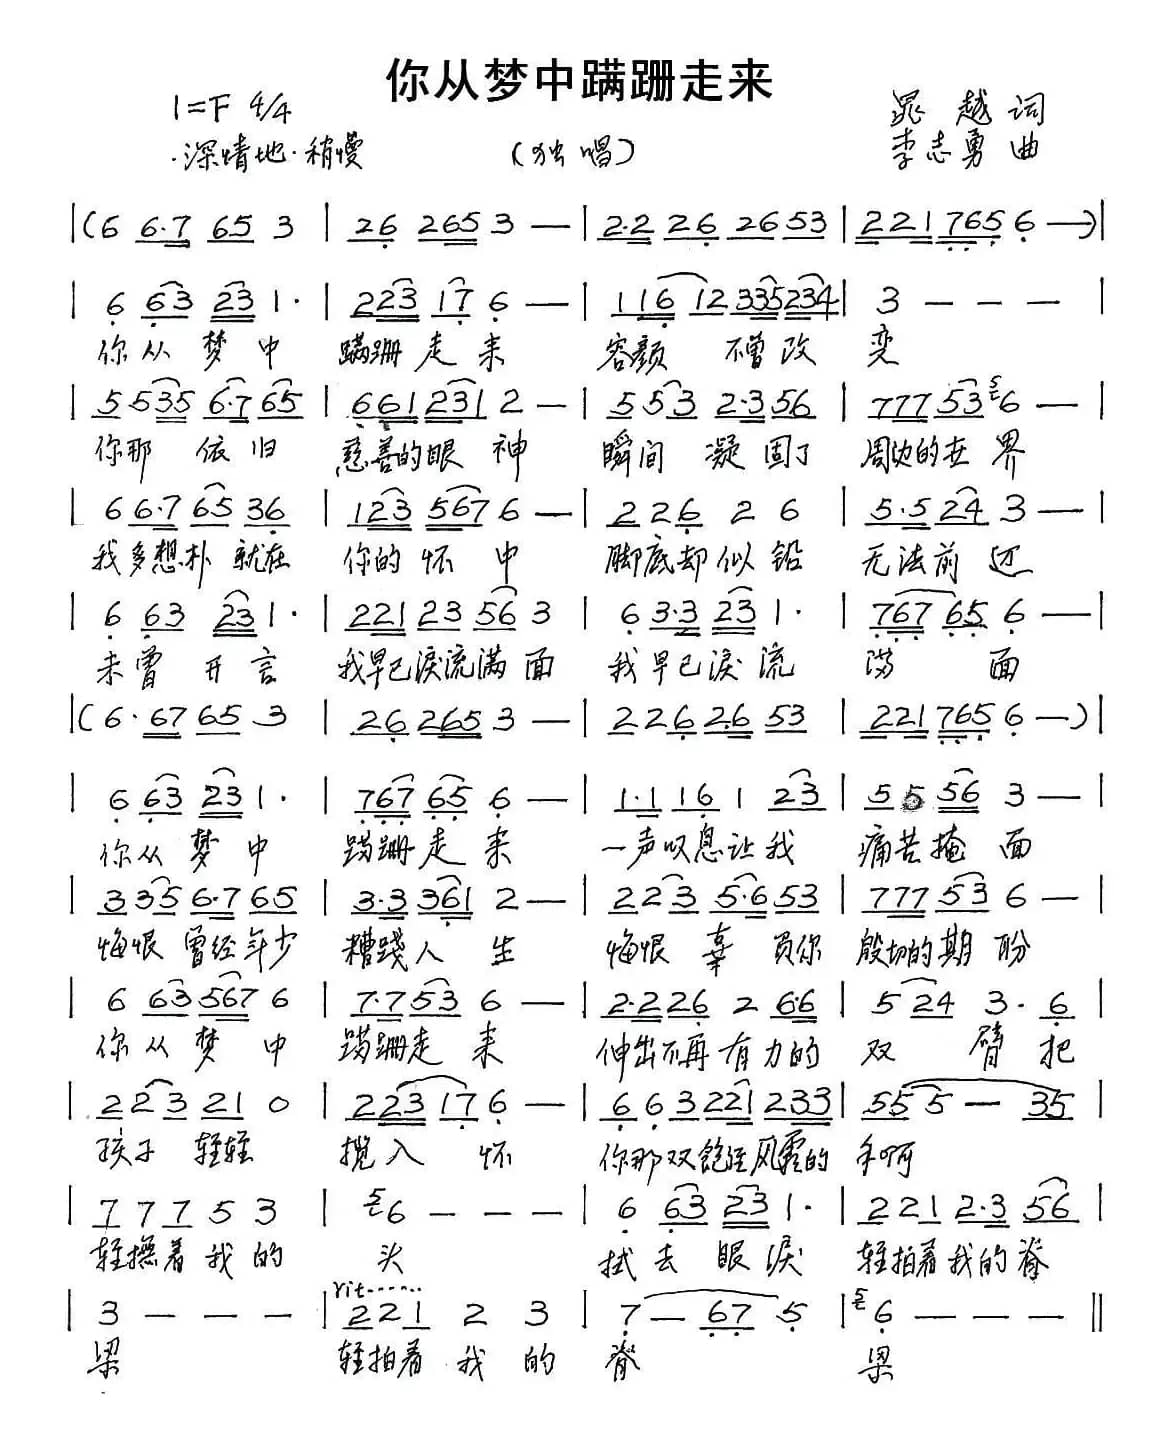 你从梦中蹒跚走来
1=F 4/4 晁越词
·深情地·稍慢 (独唱) 李志勇曲
|(6 6·7 65 3 | 26 265 3 — | 2·2 26 2653 | 221 765 6 —)|
| 6 63 23 1· | 223 17 6 — | 116 12 335 234 | 3 — — — |
你从梦中 蹒跚走来 容颜 不曾改 变
| 5 535 6·7 65 | 661 231 2 — | 5 53 2·3 56 | 777 53 6 — |
你那 依旧 慈善的眼神 瞬间凝固了 周边的世界
| 6 6·7 65 36 | 123 567 6 — | 2 26 2 6 | 5·5 24 3 — |
我多想扑就在 你的怀中 脚底却似铅 无法前迈
| 6 63 23 1· | 221 23 56 3 | 6 3·3 23 1· | 767 65 6 — |
未曾开言 我早已泪流满面 我早已泪流 满面
|(6·67 65 3 | 26 265 3 — | 2 26 2·6 53 | 221 765 6 —)|
| 6 63 23 1· | 767 65 6 — | 1·1 16 1 23 | 5 5 56 3 — |
你从梦中 蹒跚走来 一声叹息让我 痛苦掩面
| 3 35 6·7 65 | 3·3 361 2 — | 2 23 5·6 53 | 777 53 6 — |
悔恨曾经年少 糟践人生 悔恨辜负你 殷切的期盼
| 6 63 567 6 | 7·7 53 6 — | 2·2 26 2 6·6 | 5 24 3· 6 |
你从梦中 蹒跚走来 伸出不再有力的 双臂把
| 2 23 21 0 | 223 17 6 — | 6 63 221 233 | 55 5 — 35 |
孩子轻轻 揽入怀 你那双饱经风霜的 手啊
| 7 7 7 5 3 | 6 — — — | 6 63 23 1· | 2 21 2·3 56 |
轻抚着我的 头 拭去眼泪 轻拍着我的脊
rit......
| 3 — — — | 2 2 1 2 3 | 7 — 67 5 | 6 — — — ‖
梁 轻拍着我的 脊 梁